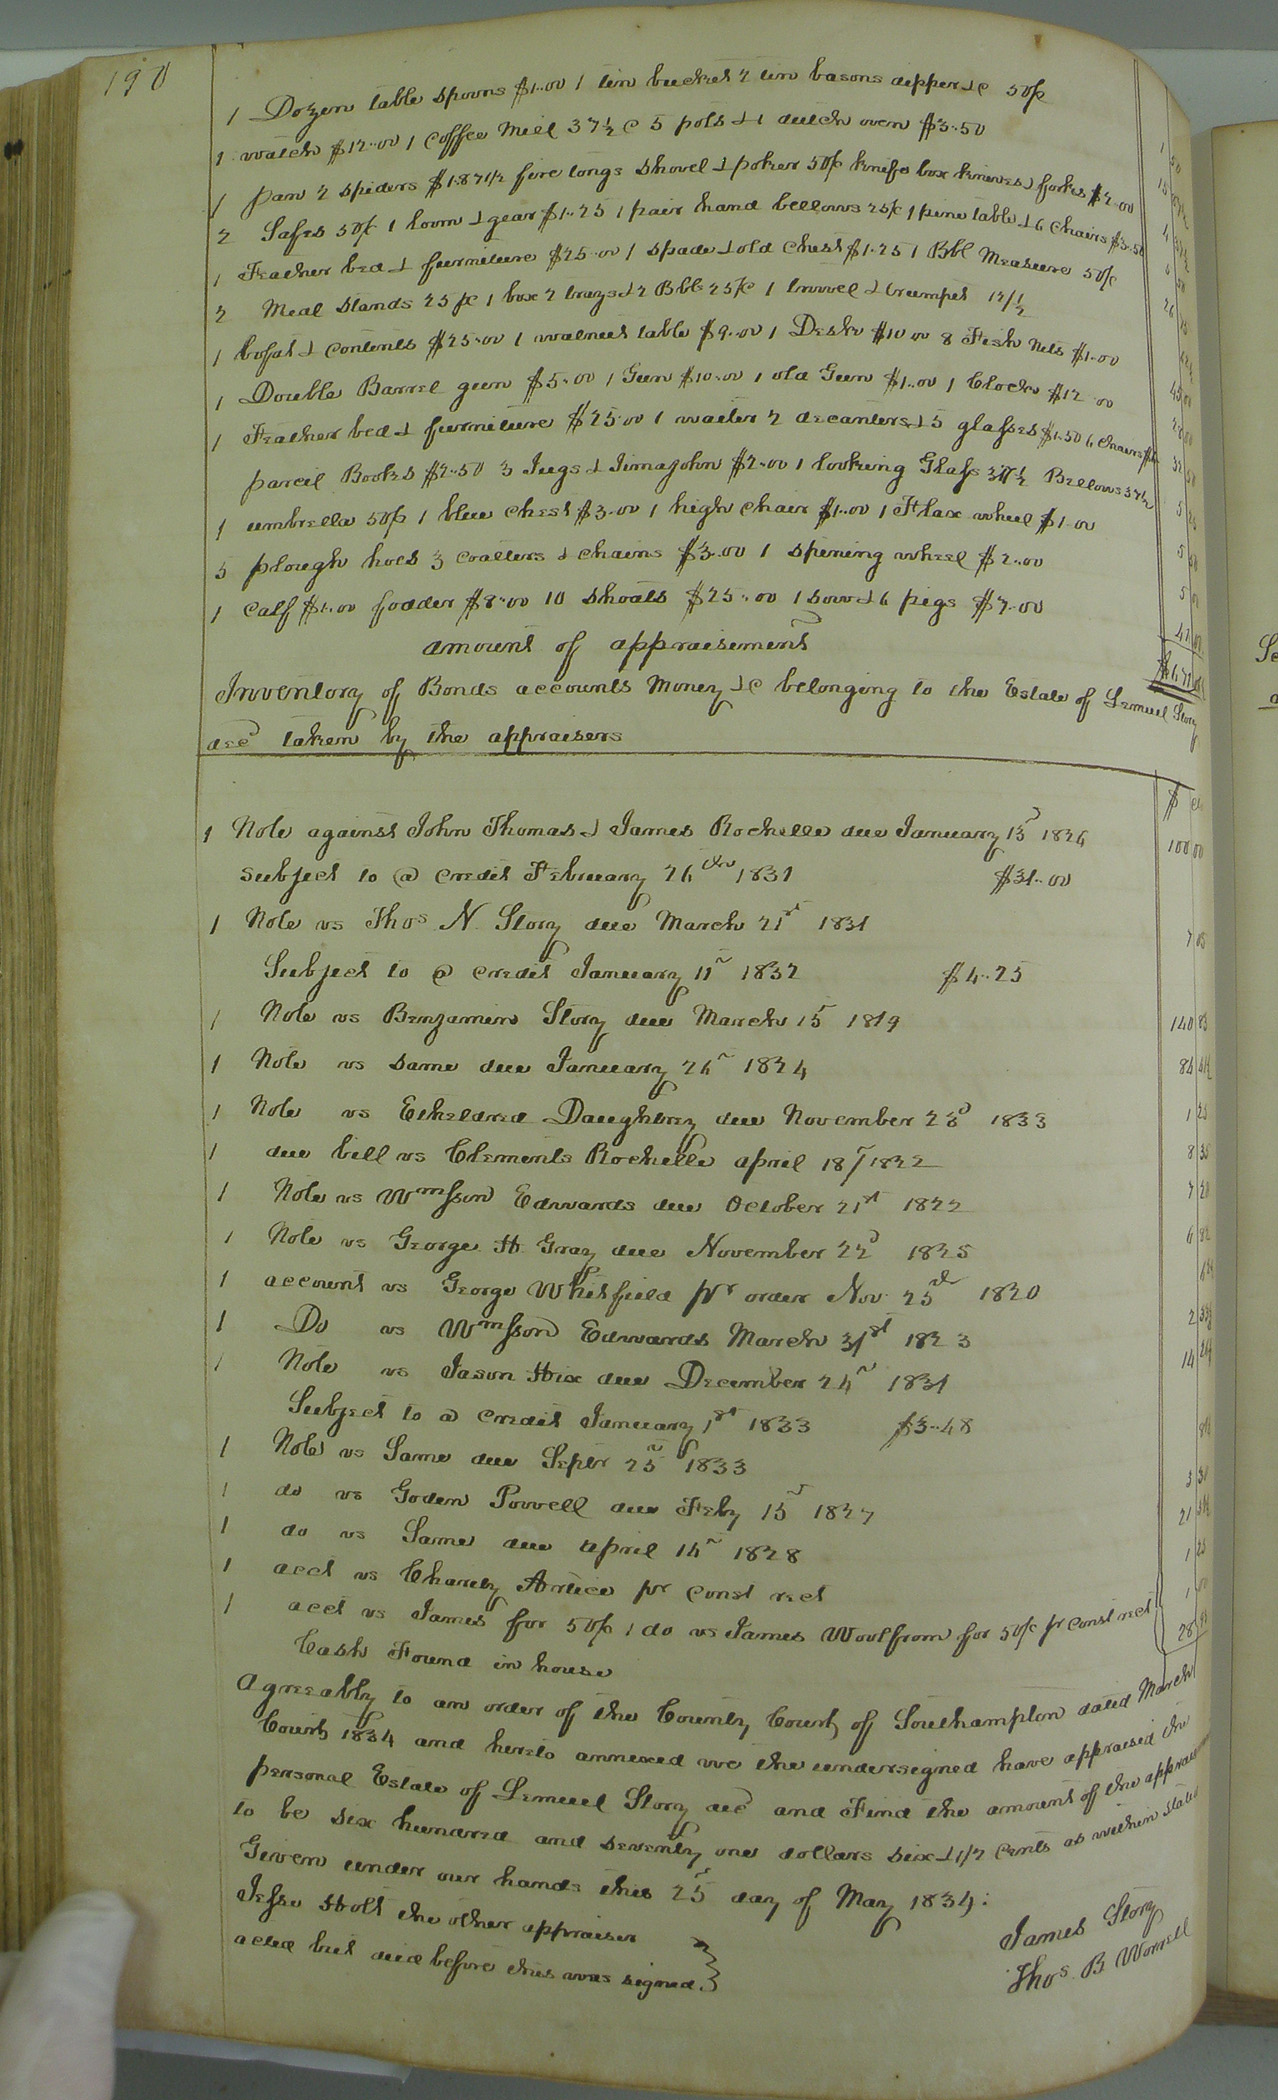 190
1 Dozen table spoons $1..00 1 tin bucket 2 tin basons dipper &c 50¢
1 watch $12..00 1 Coffee Mill 37½ c 5 pots & 1 dutch oven $3.50
1 pan 2 spiders $1.87 1/2 fire tongs shovel & poker 50¢ knife box knives & forks $2.00
2 Safes 50¢ 1 loom & gear $1..25 1 pair hand bellows 25¢ 1 pine table & 6 Chairs $3.50
1 Feather bed & furniture $25.00 1 spade & old Chest $1.25 1 Bbl Measure 50¢
2 Meal Stands 25 ¢ 1 box 2 & 2 Bbls 25¢ 1 & trumpet 12/½
1 bofat & contents $25.00 1 walnut table $9.00 1 Desk $10 00 8 Fish Nets $1.00
1 Double Barrel gun $5.00 1 Gun $10.00 1 old Gun $1..00 1 Clock $12 00
1 Feather bed & furniture $25.00 1 waiter 2 decanters & 5 glasses $1.50 6 Chairs
parcil Books $2.50 3 Jugs & Jimajohn $2.00 1 looking Glass 37½ Bellows 37½
1 umbrella 50¢ 1 blue chest $3.00 1 high chair $1..00 1 Flax wheel $1.00
5 plough hoes 3 coalters & chains $3.00 1 spining wheel $2..00
1 Calf $1..00 fodder $8.00 10 shoats $25.00 1 sow & 6 pigs $7.00
amount of appraisement
Inventory of Bonds accounts Money &c belonging to the Estate of Lemuel Story
decd taken by the appraisers
1 Note against John Thomas & James Rochelle due January 15 1826 100 00
Subject to @ credit February 26th 1831 $31..00
1 Note vs Thos N. Story due March 21st 1831 7 05
Subject to @ credit January 11 1832 $4..25
1 Note vs Benjamin Story due March 15 1819 140 83
1 Note vs same due January 26 1824
1 Note vs Etheldred Daughtrey due November 23d 1833 1 25
1 due bill vs Clements Rochelle april 18 1822 8 35
1 Note vs Wmson Edwards due October 21st 1822 7 20
1 Note vs George H. Gray due November 22d 1825 6 82
1 account vs George Whitfield pr order Nov 25th 1820
1 Do vs Wmson Edwards March 31st 1823
1 Note vs Jason Hix due December 24 1831 14
Subject to @ credit January 1st 1833 $3..48
1 Note vs Same due Septr 25 1833
1 do vs Goden Powell due Feby 15 1827
1 do vs Same due april 14 1828 21
1 acct vs Charity Artice pr const rect 1 25
1 acct vs James for 50¢ 1 do vs James Woolfrom for 50¢ pr const rect 1 00
Cash Found in house 28
Agreeably to an order of the County Court of Southampton dated March
Court 1834 and hereto annexed we the undersigned have appraised the
personal Estate of Lemuel Story decd and Find the amount of the appraisement
to be six hundred and seventy one dollars six & 1/2 cents as within stated
Given under our hands this 25 day of May 1834.
Jesse Holt the other appraiser
acted but died before this was signed.
James Story
Thos B Worrell